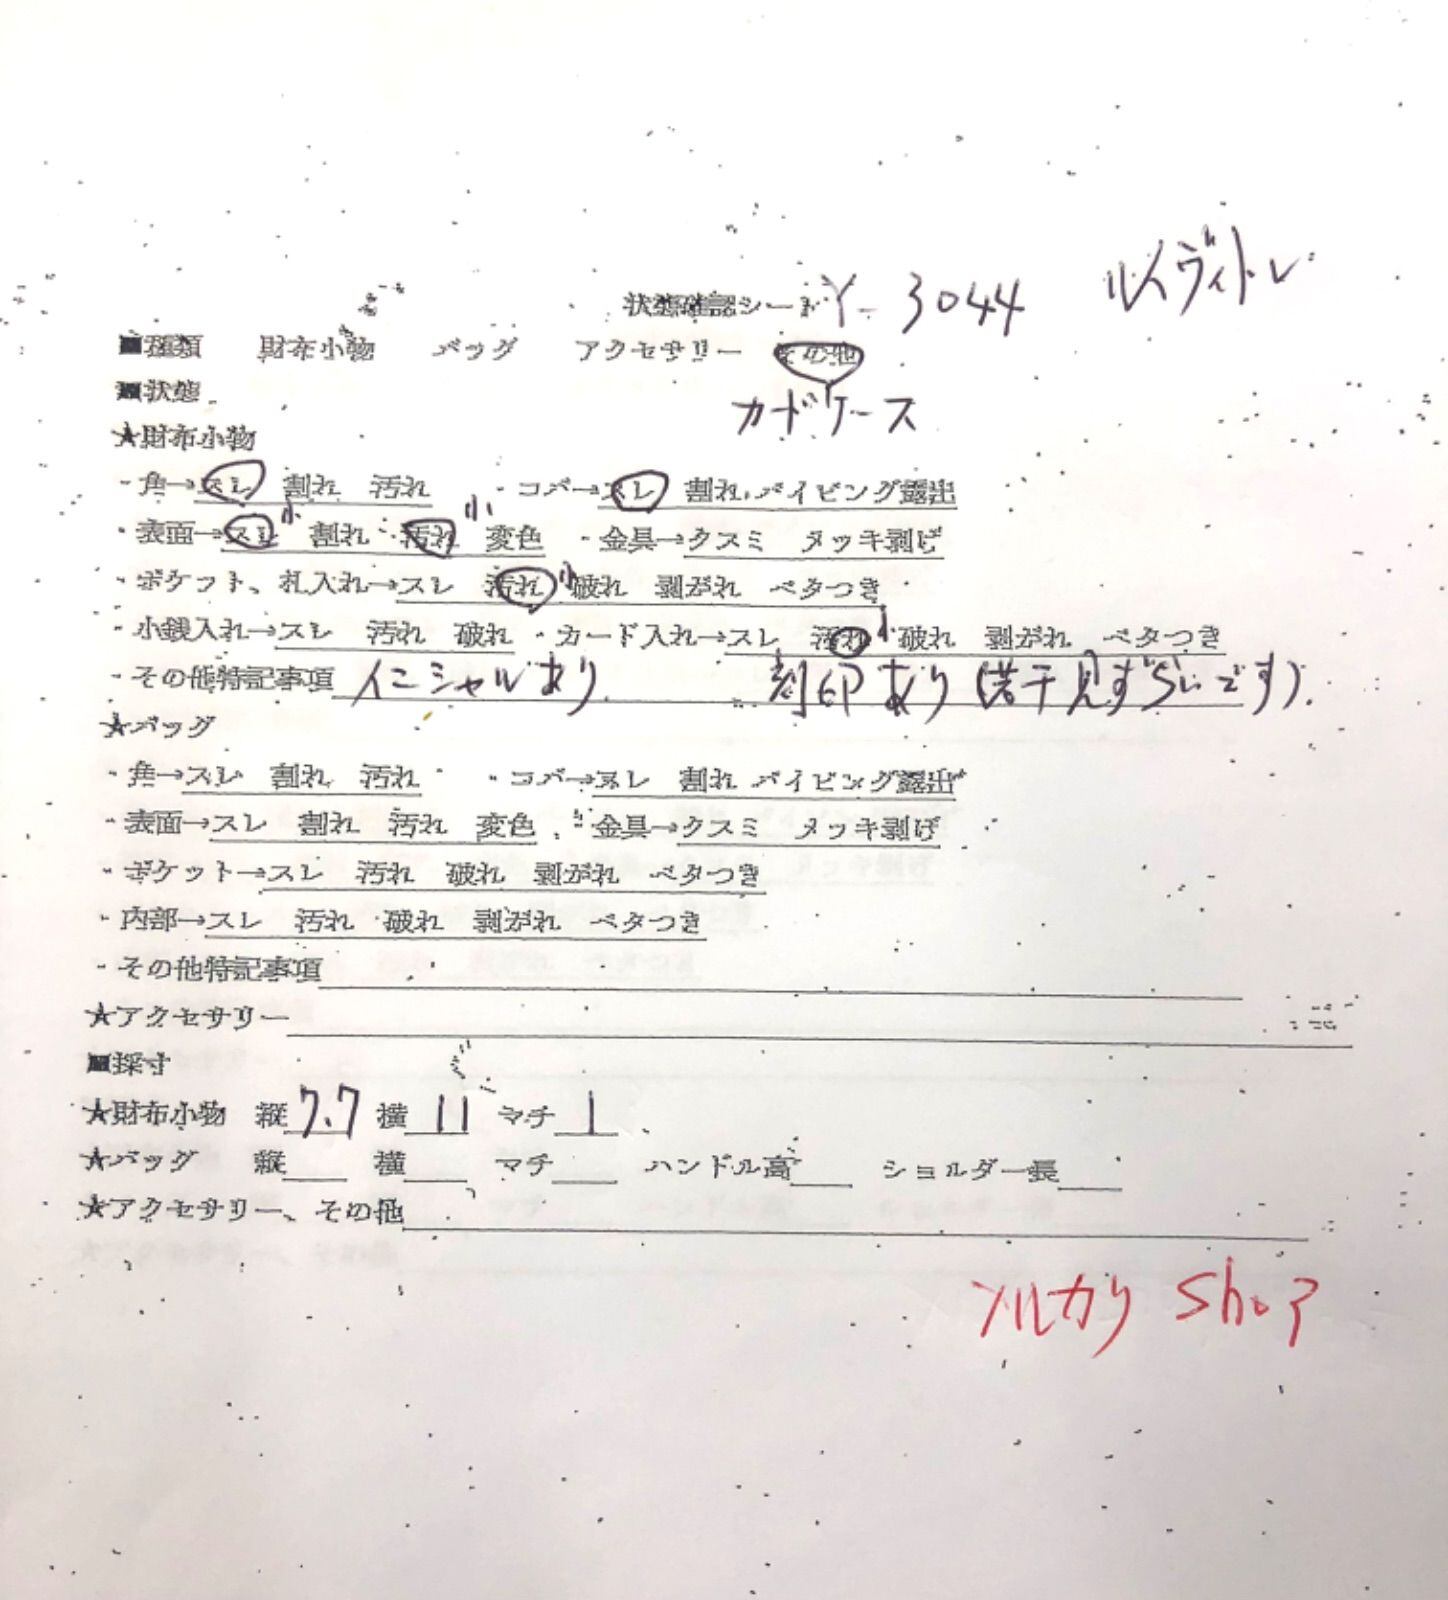 状態確認シート Y-3044 ルイヴィトン
■種類 財布小物 バッグ アクセサリー その他
カードケース
■状態
★財布小物
・角→スレ 割れ 汚れ ・コバ→スレ 割れ パイピング露出
・表面→スレ小 割れ 汚れ小 変色 ・金具→クスミ メッキ剥げ
・ポケット、札入れ→スレ 汚れ小 破れ 剥がれ ベタつき
・小銭入れ→スレ 汚れ 破れ ・カード入れ→スレ 汚れ小 破れ 剥がれ ベタつき
・その他特記事項 イニシャルあり 刻印あり(若干見ずらいです).
★バッグ
・角→スレ 割れ 汚れ ・コバ→スレ 割れ パイピング露出
・表面→スレ 割れ 汚れ 変色 ・金具→クスミ メッキ剥げ
・ポケット→スレ 汚れ 破れ 剥がれ ベタつき
・内部→スレ 汚れ 破れ 剥がれ ベタつき
・その他特記事項
★アクセサリー
■採寸
★財布小物 縦7.7 横11 マチ1
★バッグ 縦 横 マチ ハンドル高 ショルダー長
★アクセサリー、その他
メルカリ Shop